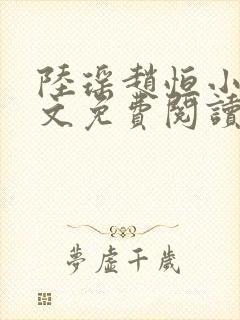 陸瑤趙恒小
文免費閱讀
夢虛千歲